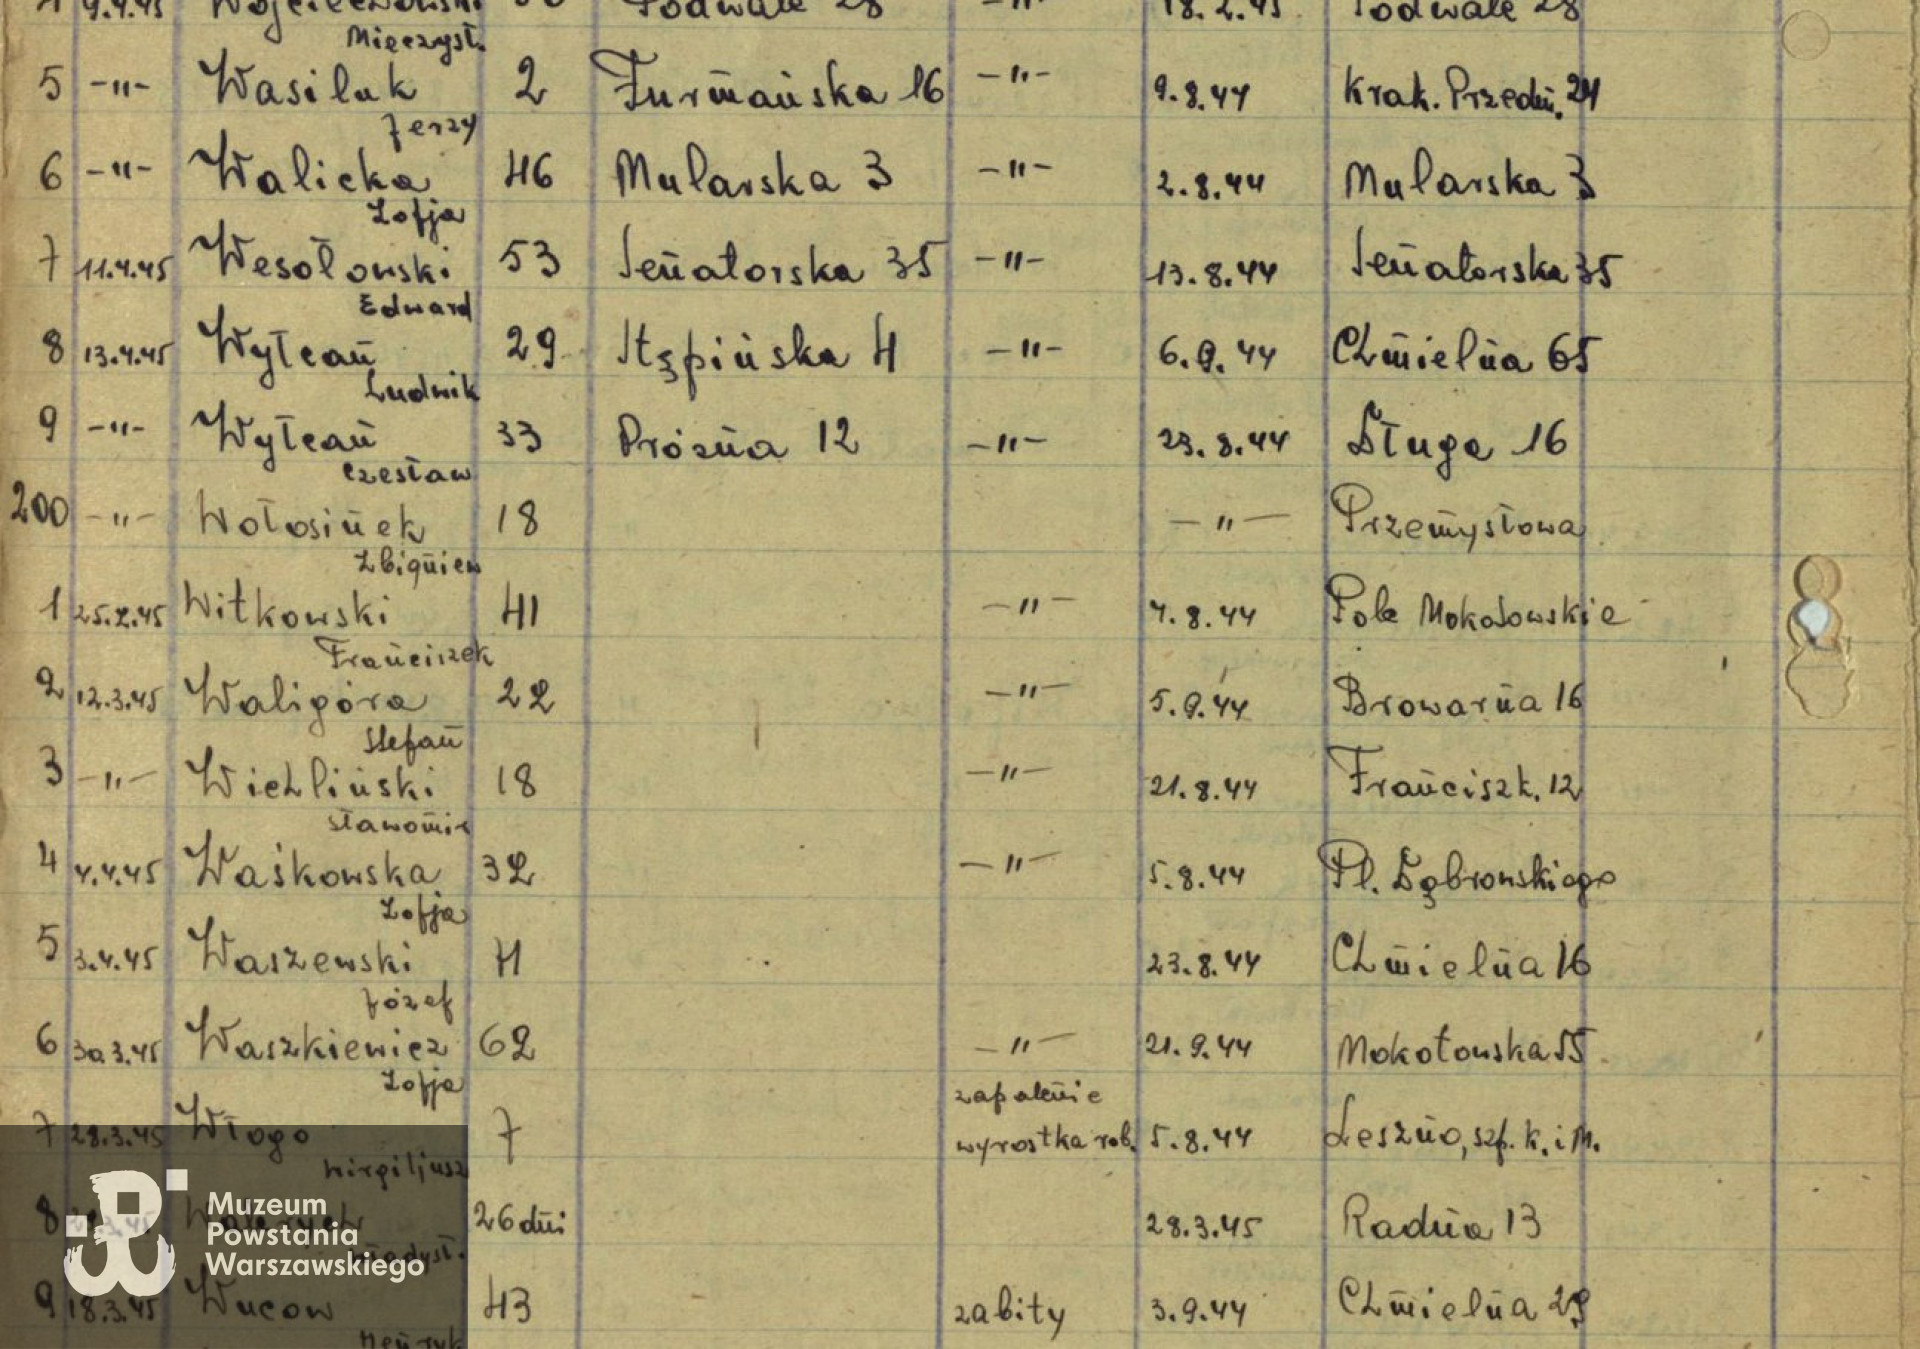 Podwale 28 -"- 18.2.45 Podwale 28
Mieczysł.
5 -"- Wasiluk 2 Furmańska 16 -"- 9.8.44 Krak. Przedm. 24
Jerzy
6 -"- Walicka 46 Mularska 3 -"- 2.8.44 Mularska 3
Zofja
7 11.4.45 Wesołowski 53 Senatorska 35 -"- 13.8.44 Senatorska 35
Edward
8 13.4.45 Wyłcan 29 Stępińska 4 -"- 6.9.44 Chmielna 65
Ludwik
9 -"- Wyłcan 33 Prózna 12 -"- 23.8.44 Długa 16
Czesław
200 -"- Wołosinek 18 -"- Przemysłowa
Zbigniew
1 25.2.45 Witkowski 41 -"- 4.8.44 Pole Mokotowskie
Franciszek
2 12.3.45 Waligóra 22 -"- 5.9.44 Browarna 16
Stefan
3 -"- Wichliński 18 -"- 21.8.44 Franciszk. 12
Sławomir
4 4.4.45 Waśkowska 32 -"- 5.8.44 Pl. Dąbrowskiego
Zofja
5 3.4.45 Waszewski 41 23.8.44 Chmielna 16
Józef
6 30.3.45 Waszkiewicz 62 -"- 21.9.44 Mokotowska 55
Zofja
zapalenie
7 28.3.45 Włogo 7 wyrostka rob. 5.8.44 Leszno, szp. K. i M.
Wirgiljusz
8 26 dni 28.3.45 Radna 13
Władysł.
9 18.3.45 Wucow 43 zabity 3.9.44 Chmielna 29
Henryk
Muzeum
Powstania
Warszawskiego